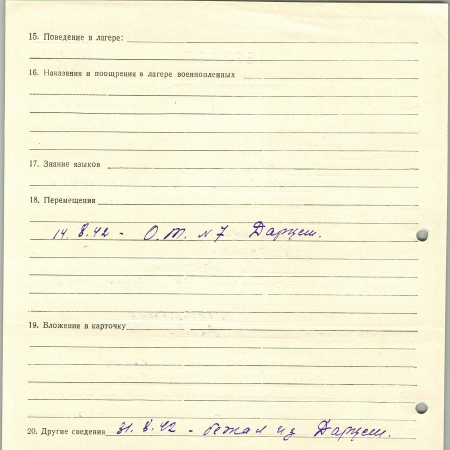 15. Поведение в лагере:
16. Наказания и поощрения в лагере военнопленных
17. Знание языков
18. Перемещения
14. 8. 42 - О.Т. №7 Дарцем.
19. Вложения в карточку
20. Другие сведения 31. 8. 42 - бежал из Дарцем.